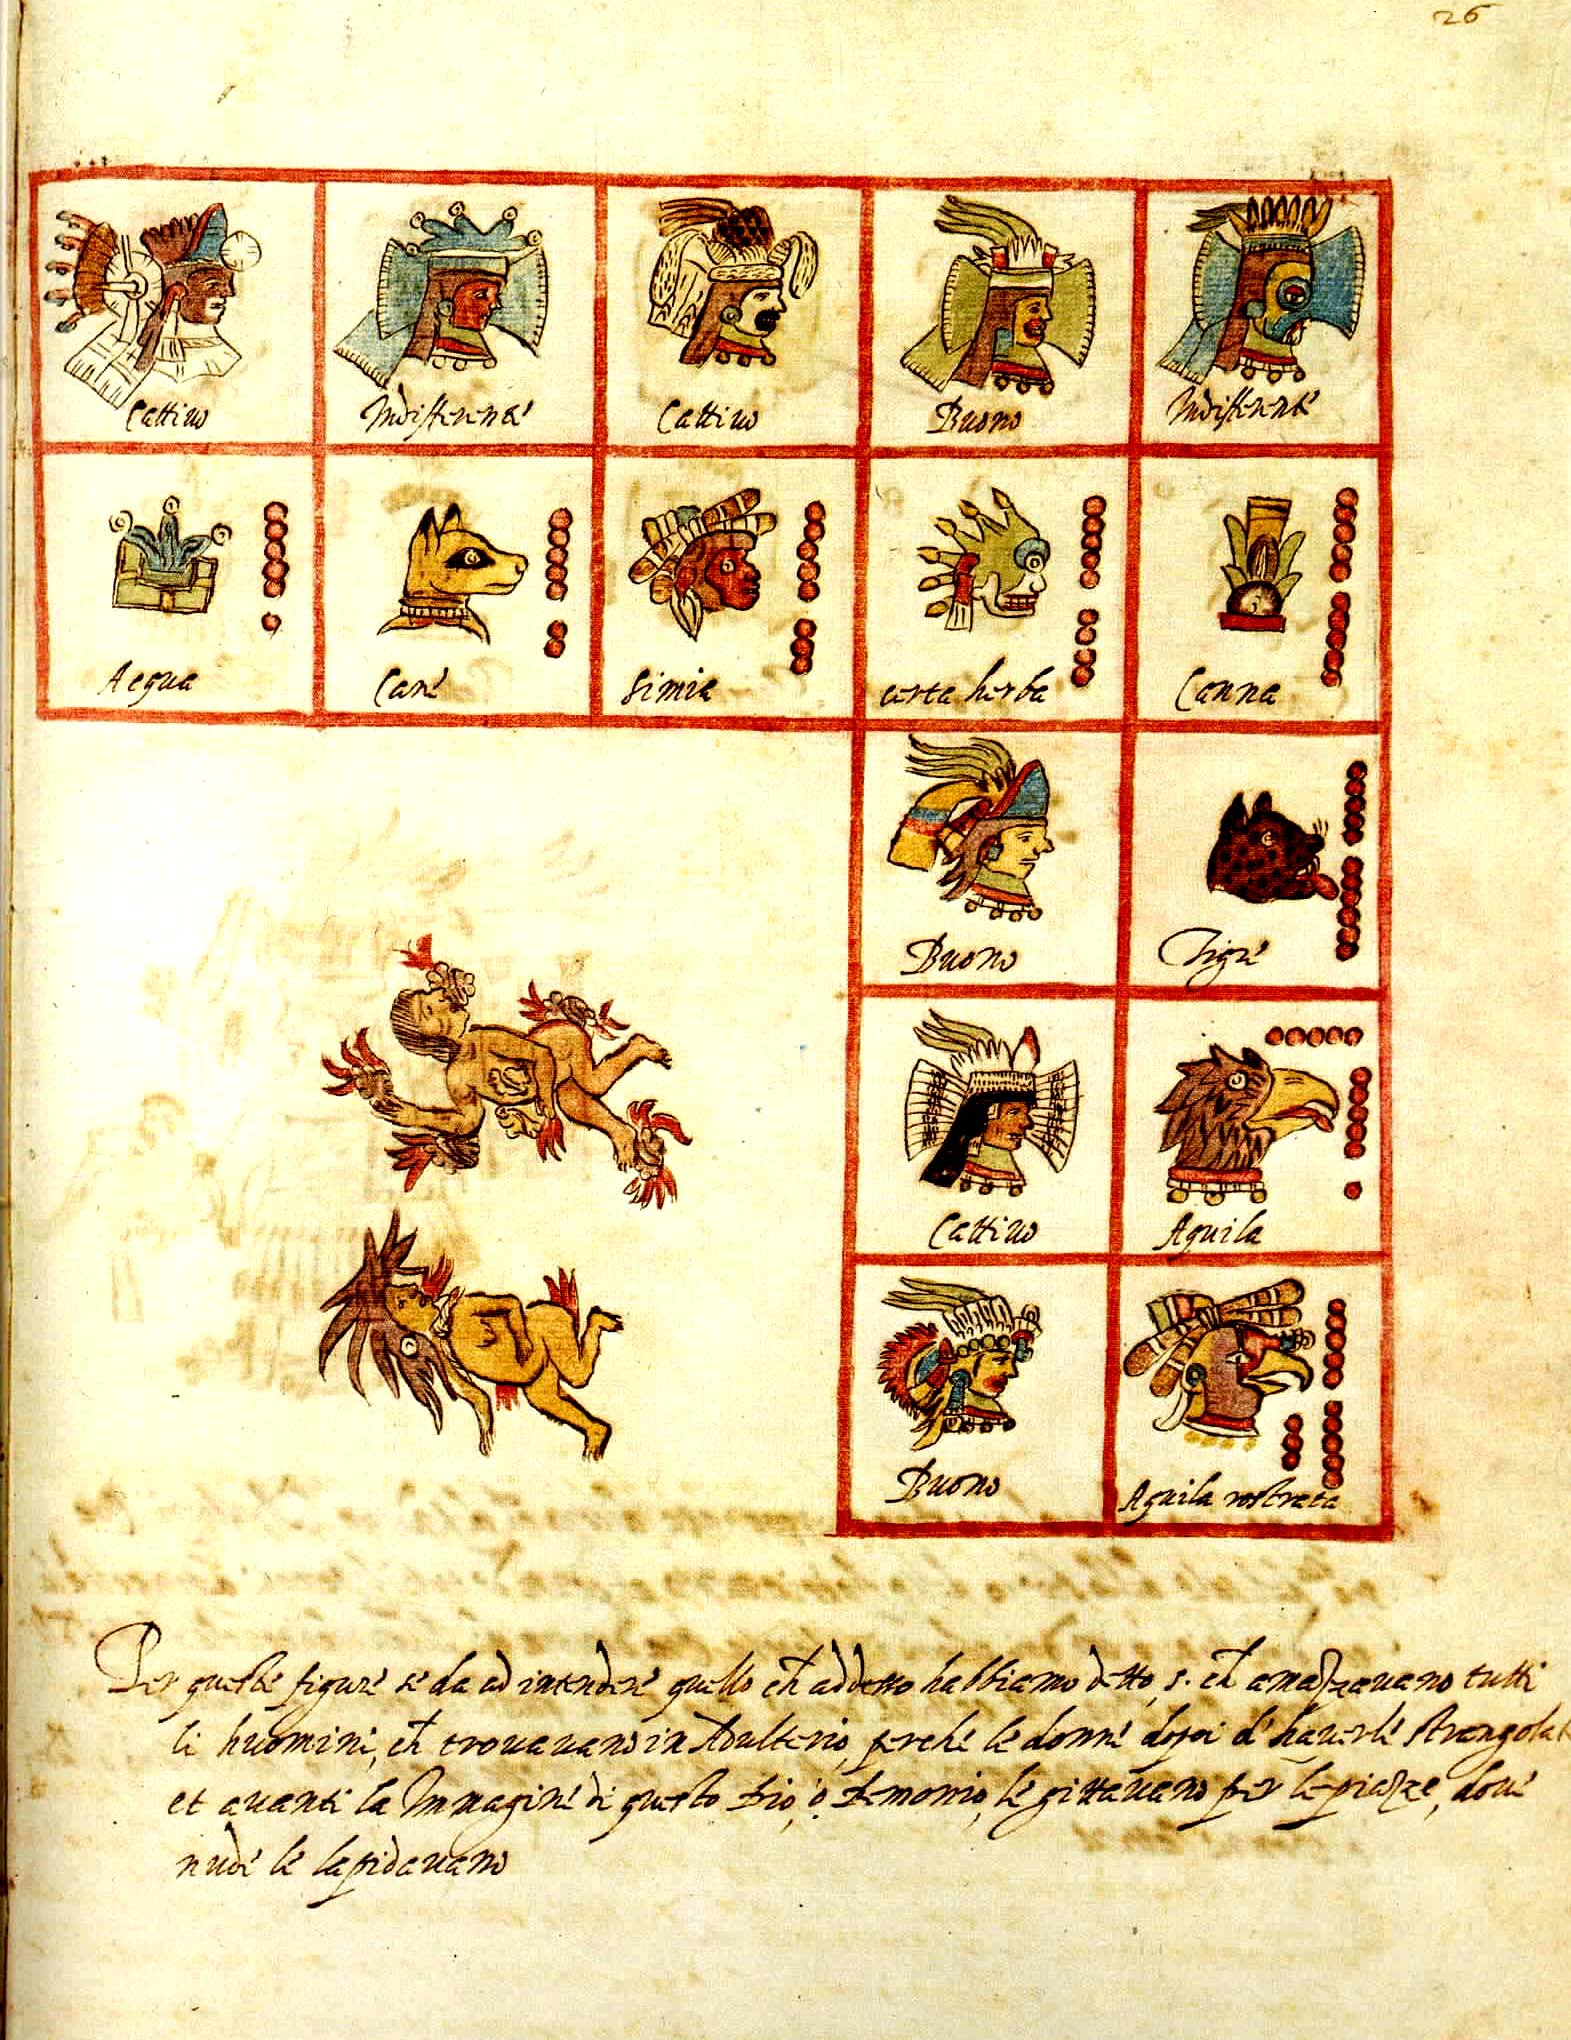 26
Cattivo Indifferente Cattivo Buono Indifferente
Acqua Cane Simia certa herba Canna
Buono Tigre
Cattivo Aquila
Buono Aquila rostrata
Per queste figure se da ad intendere quello ch̃ addesso habbiamo detto, s. ch̃ amazzavano tutti
li huomini, ch̃ trovavano in Adulterio, perche le donne dopoi d'haverle strangolat
et avanti la Immagine di questo Dio, ò Demonio, le gittavano per le piazze, dove
nude le lapidavano